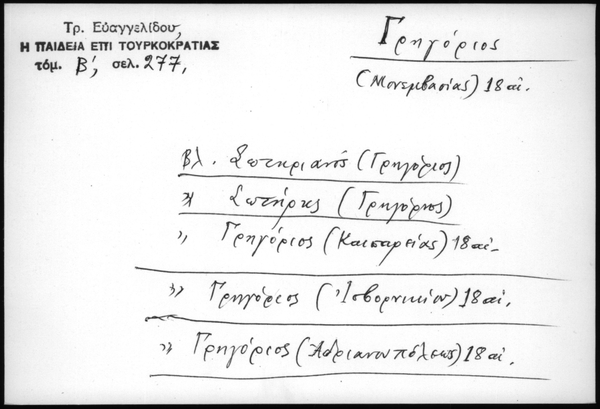 Τρ. Εὐαγγελίδου,
Η ΠΑΙΔΕΙΑ ΕΠΙ ΤΟΥΡΚΟΚΡΑΤΙΑΣ
τόμ. Β΄, σελ. 277,
Γρηγόριος
(Μονεμβασίας) 18 αἰ.
Βλ. Σωτηριανός (Γρηγόριος)
» Σωτήρης (Γρηγόριος)
» Γρηγόριος (Καισαρείας) 18 αἰ.
» Γρηγόριος (Ἰσβορνικίου) 18 αἰ.
» Γρηγόριος (Ἀδριανουπόλεως) 18 αἰ.